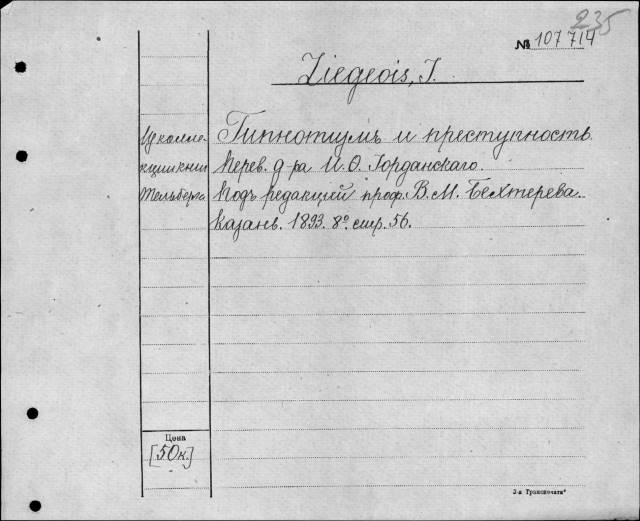 235
№ 107714
Liegeois, J.
Из колле-
кции книг
Тельберга
Гипнотизмъ и преступность.
Перев. д-ра И. О. Горданскаго.
Подъ редакціей проф. В. М. Бехтерева.
Казань. 1893. 8º. стр. 56.
Цена
[50к.]
3-я Транспечати"